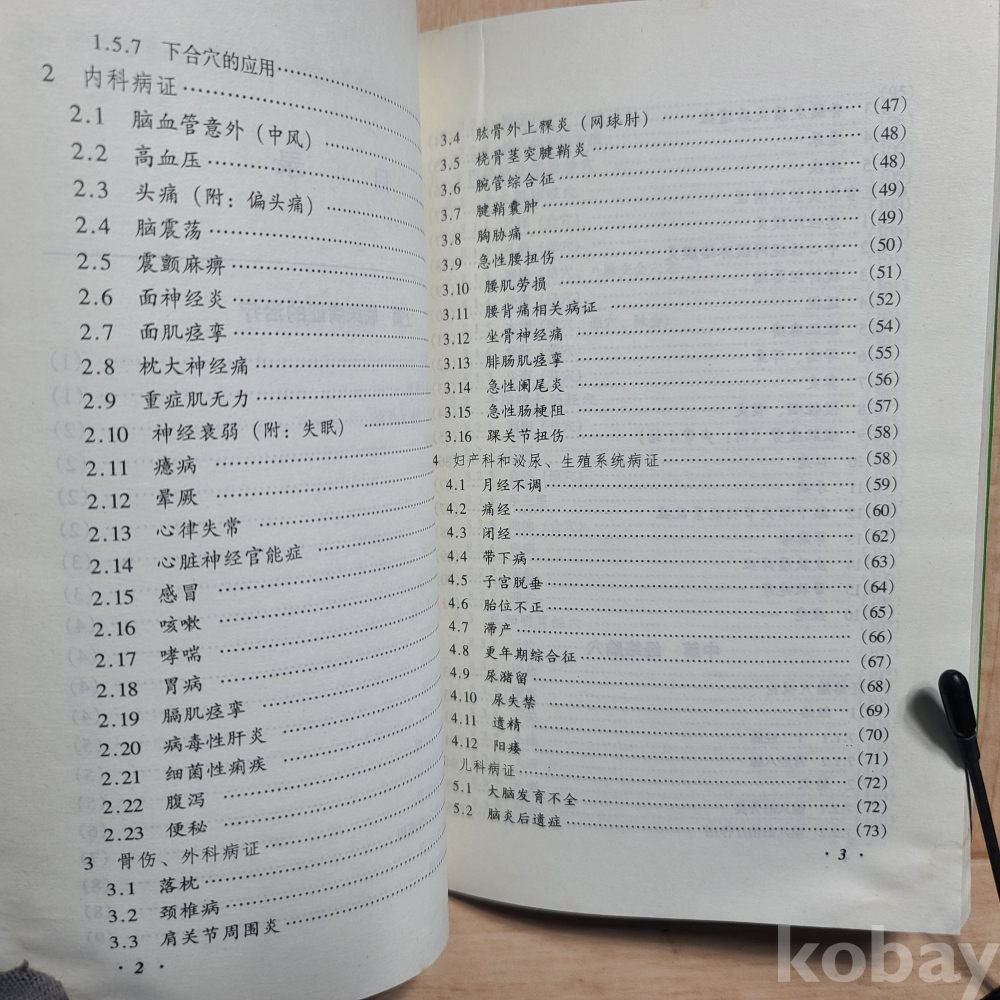 1.5.7 下合穴的应用
2 内科病证
2.1 脑血管意外(中风)
2.2 高血压
2.3 头痛(附:偏头痛)
2.4 脑震荡
2.5 震颤麻痹
2.6 面神经炎
2.7 面肌痉挛
2.8 枕大神经痛
2.9 重症肌无力
2.10 神经衰弱(附:失眠)
2.11 癔病
2.12 晕厥
2.13 心律失常
2.14 心脏神经官能症
2.15 感冒
2.16 咳嗽
2.17 哮喘
2.18 胃病
2.19 膈肌痉挛
2.20 病毒性肝炎
2.21 细菌性痢疾
2.22 腹泻
2.23 便秘
3 骨伤、外科病证
3.1 落枕
3.2 颈椎病
3.3 肩关节周围炎
· 2 ·
3.4 肱骨外上髁炎(网球肘) (47)
3.5 桡骨茎突腱鞘炎 (48)
3.6 腕管综合征 (48)
3.7 腱鞘囊肿 (49)
3.8 胸胁痛 (49)
3.9 急性腰扭伤 (50)
3.10 腰肌劳损 (51)
3.11 腰背痛相关病证 (52)
3.12 坐骨神经痛 (54)
3.13 腓肠肌痉挛 (55)
3.14 急性阑尾炎 (56)
3.15 急性肠梗阻 (57)
3.16 踝关节扭伤 (58)
4 妇产科和泌尿、生殖系统病证 (58)
4.1 月经不调 (59)
4.2 痛经 (60)
4.3 闭经 (62)
4.4 带下病 (63)
4.5 子宫脱垂 (64)
4.6 胎位不正 (65)
4.7 滞产 (66)
4.8 更年期综合征 (67)
4.9 尿潴留 (68)
4.10 尿失禁 (69)
4.11 遗精 (70)
4.12 阳痿 (71)
儿科病证 (72)
5.1 大脑发育不全 (72)
5.2 脑炎后遗症 (73)
· 3 ·
kobay